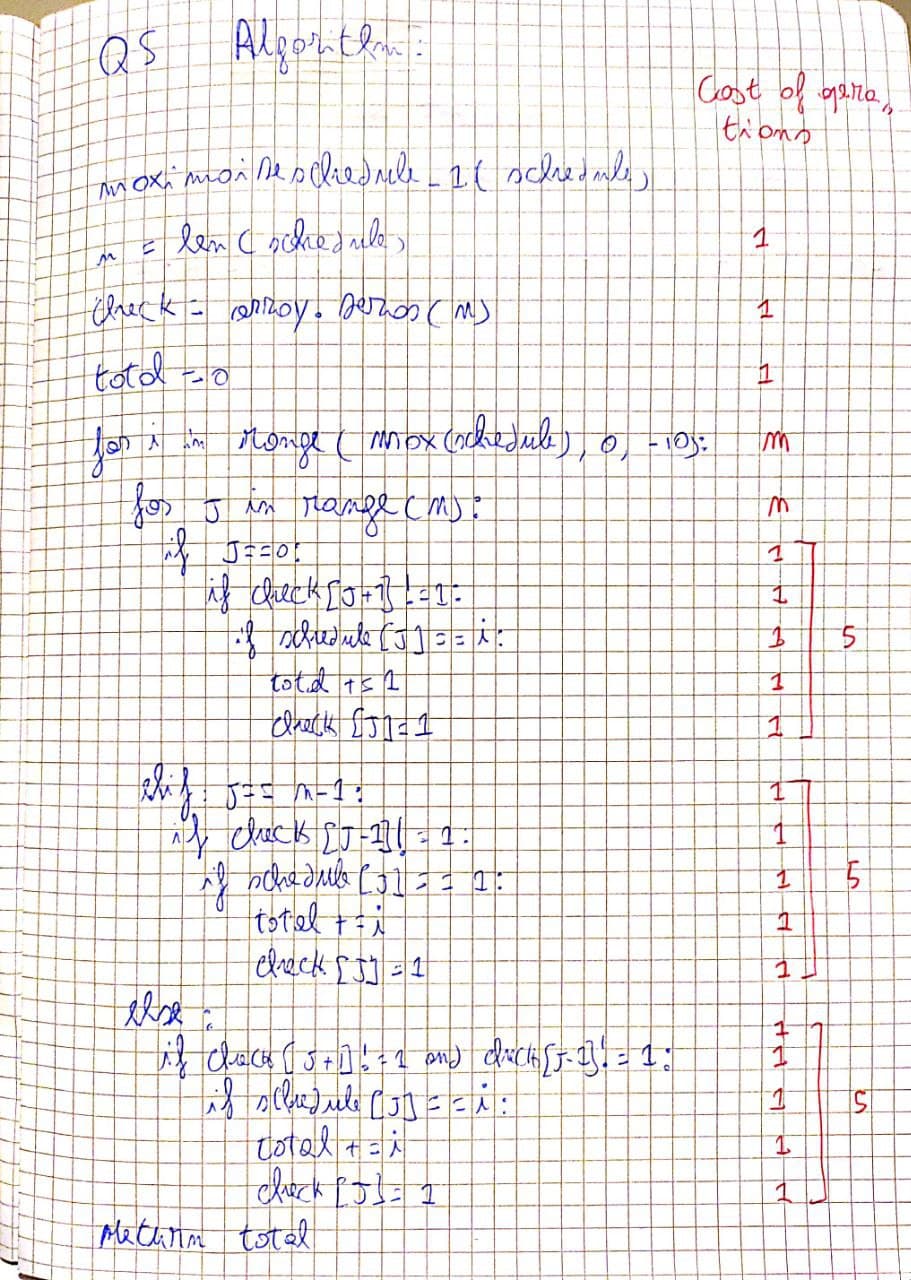 Q5 Algorithm:
Cost of opera
tions
maximaiseschedule_1( schedule)
n = len( schedule) 1
check = array.zeros(n) 1
total = 0 1
for i in range( max(schedule), 0, -10): n
for J in range(n): n
if J==0: 1
if check[J+1] != 1: 1
if schedule[J] == i: 1 5
total += 1 1
check [J]=1 1
elif: J== n-1: 1
if check [J-1] != 1: 1
if schedule[J] == 1: 1 5
total += i 1
check [J] = 1 1
else: 1
if check [J+1] != 1 and check[J-1] != 1: 1
if schedule[J] == i: 1 5
total += i 1
check [J] = 1 1
return total